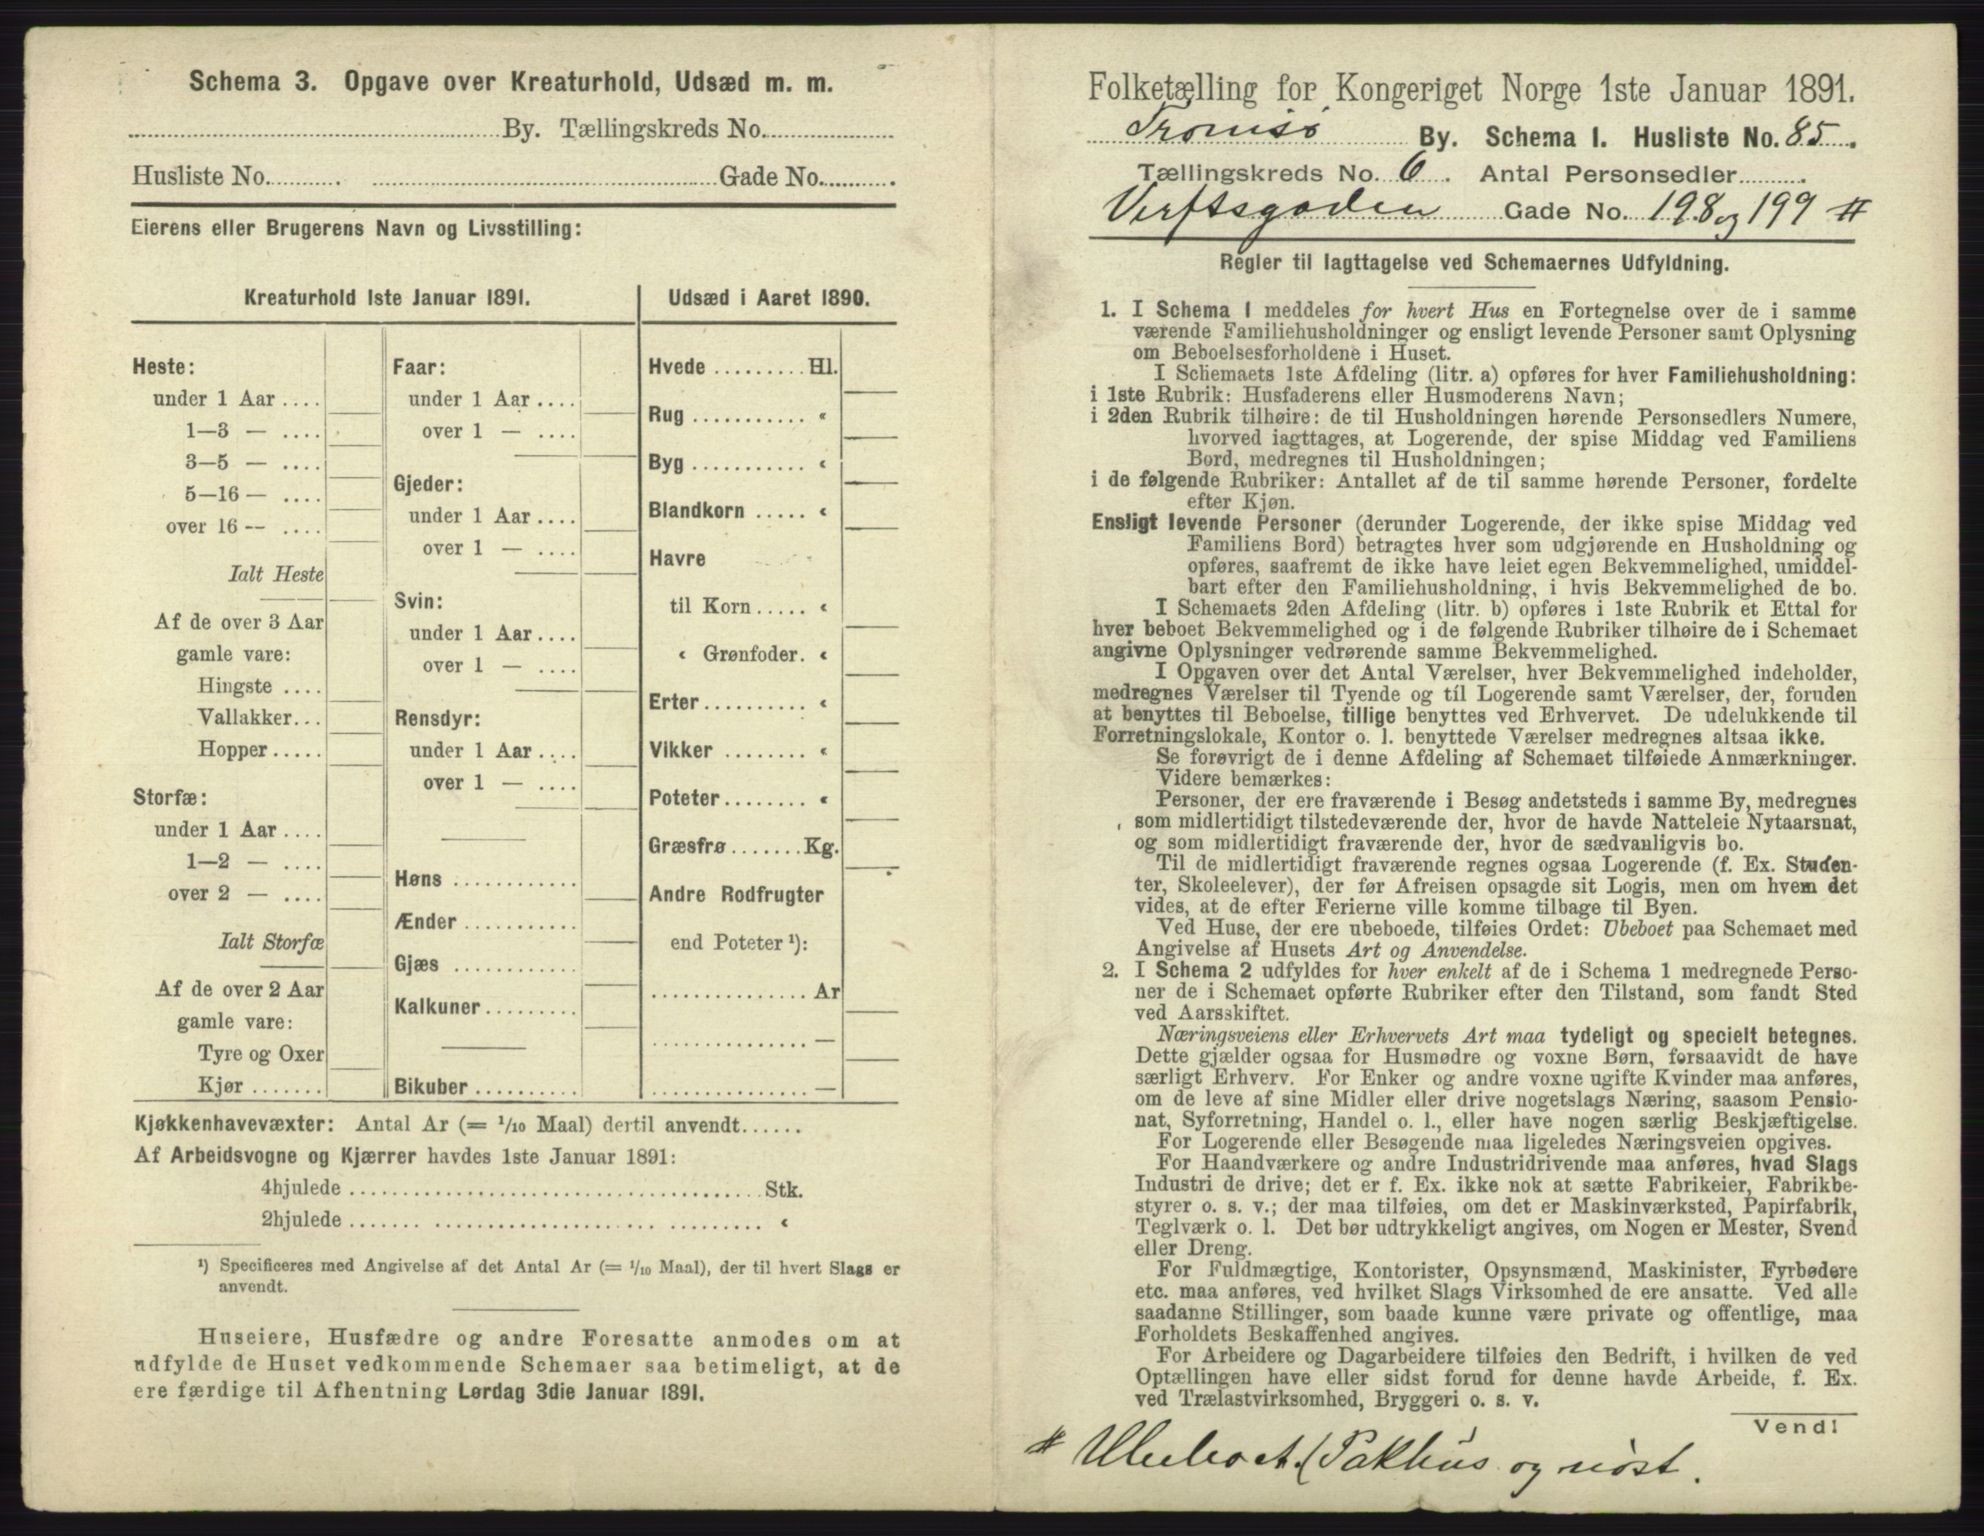 Schema 3. Opgave over Kreaturhold, Udsæd m. m.
By. Tællingskreds No.
Husliste No. Gade No.
Eierens eller Brugerens Navn og Livsstilling:
Kreaturhold 1ste Januar 1891.
Heste:
under 1 Aar
1—3 —
3—5 —
5—16 —
over 16 —
Ialt Heste
Af de over 3 Aar
gamle vare:
Hingste
Vallakker
Hopper
Storfæ:
under 1 Aar
1—2 —
over 2 —
Ialt Storfæ
Af de over 2 Aar
gamle vare:
Tyre og Oxer
Kjør
Faar:
under 1 Aar
over 1 —
Gjeder:
under 1 Aar
over 1 —
Svin:
under 1 Aar
over 1 —
Rensdyr:
under 1 Aar
over 1 —
Høns
Ænder
Gjæs
Kalkuner
Bikuber
Udsæd i Aaret 1890.
Hvede Hl.
Rug «
Byg «
Blandkorn «
Havre
til Korn «
« Grønfoder. «
Erter «
Vikker «
Poteter «
Græsfrø Kg.
Andre Rodfrugter
end Poteter ¹):
Ar
—
—
Kjøkkenhavevæxter: Antal Ar (= 1/10 Maal) dertil anvendt
Af Arbeidsvogne og Kjærrer havdes 1ste Januar 1891:
4hjulede Stk.
2hjulede «
¹) Specificeres med Angivelse af det Antal Ar (= 1/10 Maal), der til hvert Slags er
anvendt.
Huseiere, Husfædre og andre Foresatte anmodes om at
udfylde de Huset vedkommende Schemaer saa betimeligt, at de
ere færdige til Afhentning Lørdag 3die Januar 1891.
Folketælling for Kongeriget Norge 1ste Januar 1891.
Tromsø By. Schema I. Husliste No. 85.
Tællingskreds No. 6. Antal Personsedler
Verftsgaden Gade No. 198 og 199 #
Regler til Iagttagelse ved Schemaernes Udfyldning.
1. I Schema 1 meddeles for hvert Hus en Fortegnelse over de i samme
værende Familiehusholdninger og ensligt levende Personer samt Oplysning
om Beboelsesforholdene i Huset.
I Schemaets 1ste Afdeling (litr. a) opføres for hver Familiehusholdning:
i 1ste Rubrik: Husfaderens eller Husmoderens Navn;
i 2den Rubrik tilhøire: de til Husholdningen hørende Personsedlers Numere,
hvorved iagttages, at Logerende, der spise Middag ved Familiens
Bord, medregnes til Husholdningen;
i de følgende Rubriker: Antallet af de til samme hørende Personer, fordelte
efter Kjøn.
Ensligt levende Personer (derunder Logerende, der ikke spise Middag ved
Familiens Bord) betragtes hver som udgjørende en Husholdning og
opføres, saafremt de ikke have leiet egen Bekvemmelighed, umiddel-
bart efter den Familiehusholdning, i hvis Bekvemmelighed de bo.
I Schemaets 2den Afdeling (litr. b) opføres i 1ste Rubrik et Ettal for
hver beboet Bekvemmelighed og i de følgende Rubriker tilhøire de i Schemaet
angivne Oplysninger vedrørende samme Bekvemmelighed.
I Opgaven over det Antal Værelser, hver Bekvemmelighed indeholder,
medregnes Værelser til Tyende og til Logerende samt Værelser, der, foruden
at benyttes til Beboelse, tillige benyttes ved Erhvervet. De udelukkende til
Forretningslokale, Kontor o. l. benyttede Værelser medregnes altsaa ikke.
Se forøvrigt de i denne Afdeling af Schemaet tilføiede Anmærkninger.
Videre bemærkes:
Personer, der ere fraværende i Besøg andetsteds i samme By, medregnes
som midlertidigt tilstedeværende der, hvor de havde Natteleie Nytaarsnat,
og som midlertidigt fraværende der, hvor de sædvanligvis bo.
Til de midlertidigt fraværende regnes ogsaa Logerende (f. Ex. Studen-
ter, Skoleelever), der før Afreisen opsagde sit Logis, men om hvem det
vides, at de efter Ferierne ville komme tilbage til Byen.
Ved Huse, der ere ubeboede, tilføies Ordet: Ubeboet paa Schemaet med
Angivelse af Husets Art og Anvendelse.
2. I Schema 2 udfyldes for hver enkelt af de i Schema 1 medregnede Perso-
ner de i Schemaet opførte Rubriker efter den Tilstand, som fandt Sted
ved Aarsskiftet.
Næringsveiens eller Erhvervets Art maa tydeligt og specielt betegnes.
Dette gjælder ogsaa for Husmødre og voxne Børn, forsaavidt de have
særligt Erhverv. For Enker og andre voxne ugifte Kvinder maa anføres,
om de leve af sine Midler eller drive nogetslags Næring, saasom Pensio-
nat, Syforretning, Handel o. l., eller have nogen særlig Beskjæftigelse.
For Logerende eller Besøgende maa ligeledes Næringsveien opgives.
For Haandværkere og andre Industridrivende maa anføres, hvad Slags
Industri de drive; det er f. Ex. ikke nok at sætte Fabrikeier, Fabrikbe-
styrer o. s. v.; der maa tilføies, om det er Maskinværksted, Papirfabrik,
Teglværk o. l. Det bør udtrykkeligt angives, om Nogen er Mester, Svend
eller Dreng.
For Fuldmægtige, Kontorister, Opsynsmænd, Maskinister, Fyrbødere
etc. maa anføres, ved hvilket Slags Virksomhed de ere ansatte. Ved alle
saadanne Stillinger, som baade kunne være private og offentlige, maa
Forholdets Beskaffenhed angives.
For Arbeidere og Dagarbeidere tilføies den Bedrift, i hvilken de ved
Optællingen have eller sidst forud for denne havde Arbeide, f. Ex.
ved Trælastvirksomhed, Bryggeri o. s. v.
Vend!
# Ubeboet. (Pakhus og nøst.